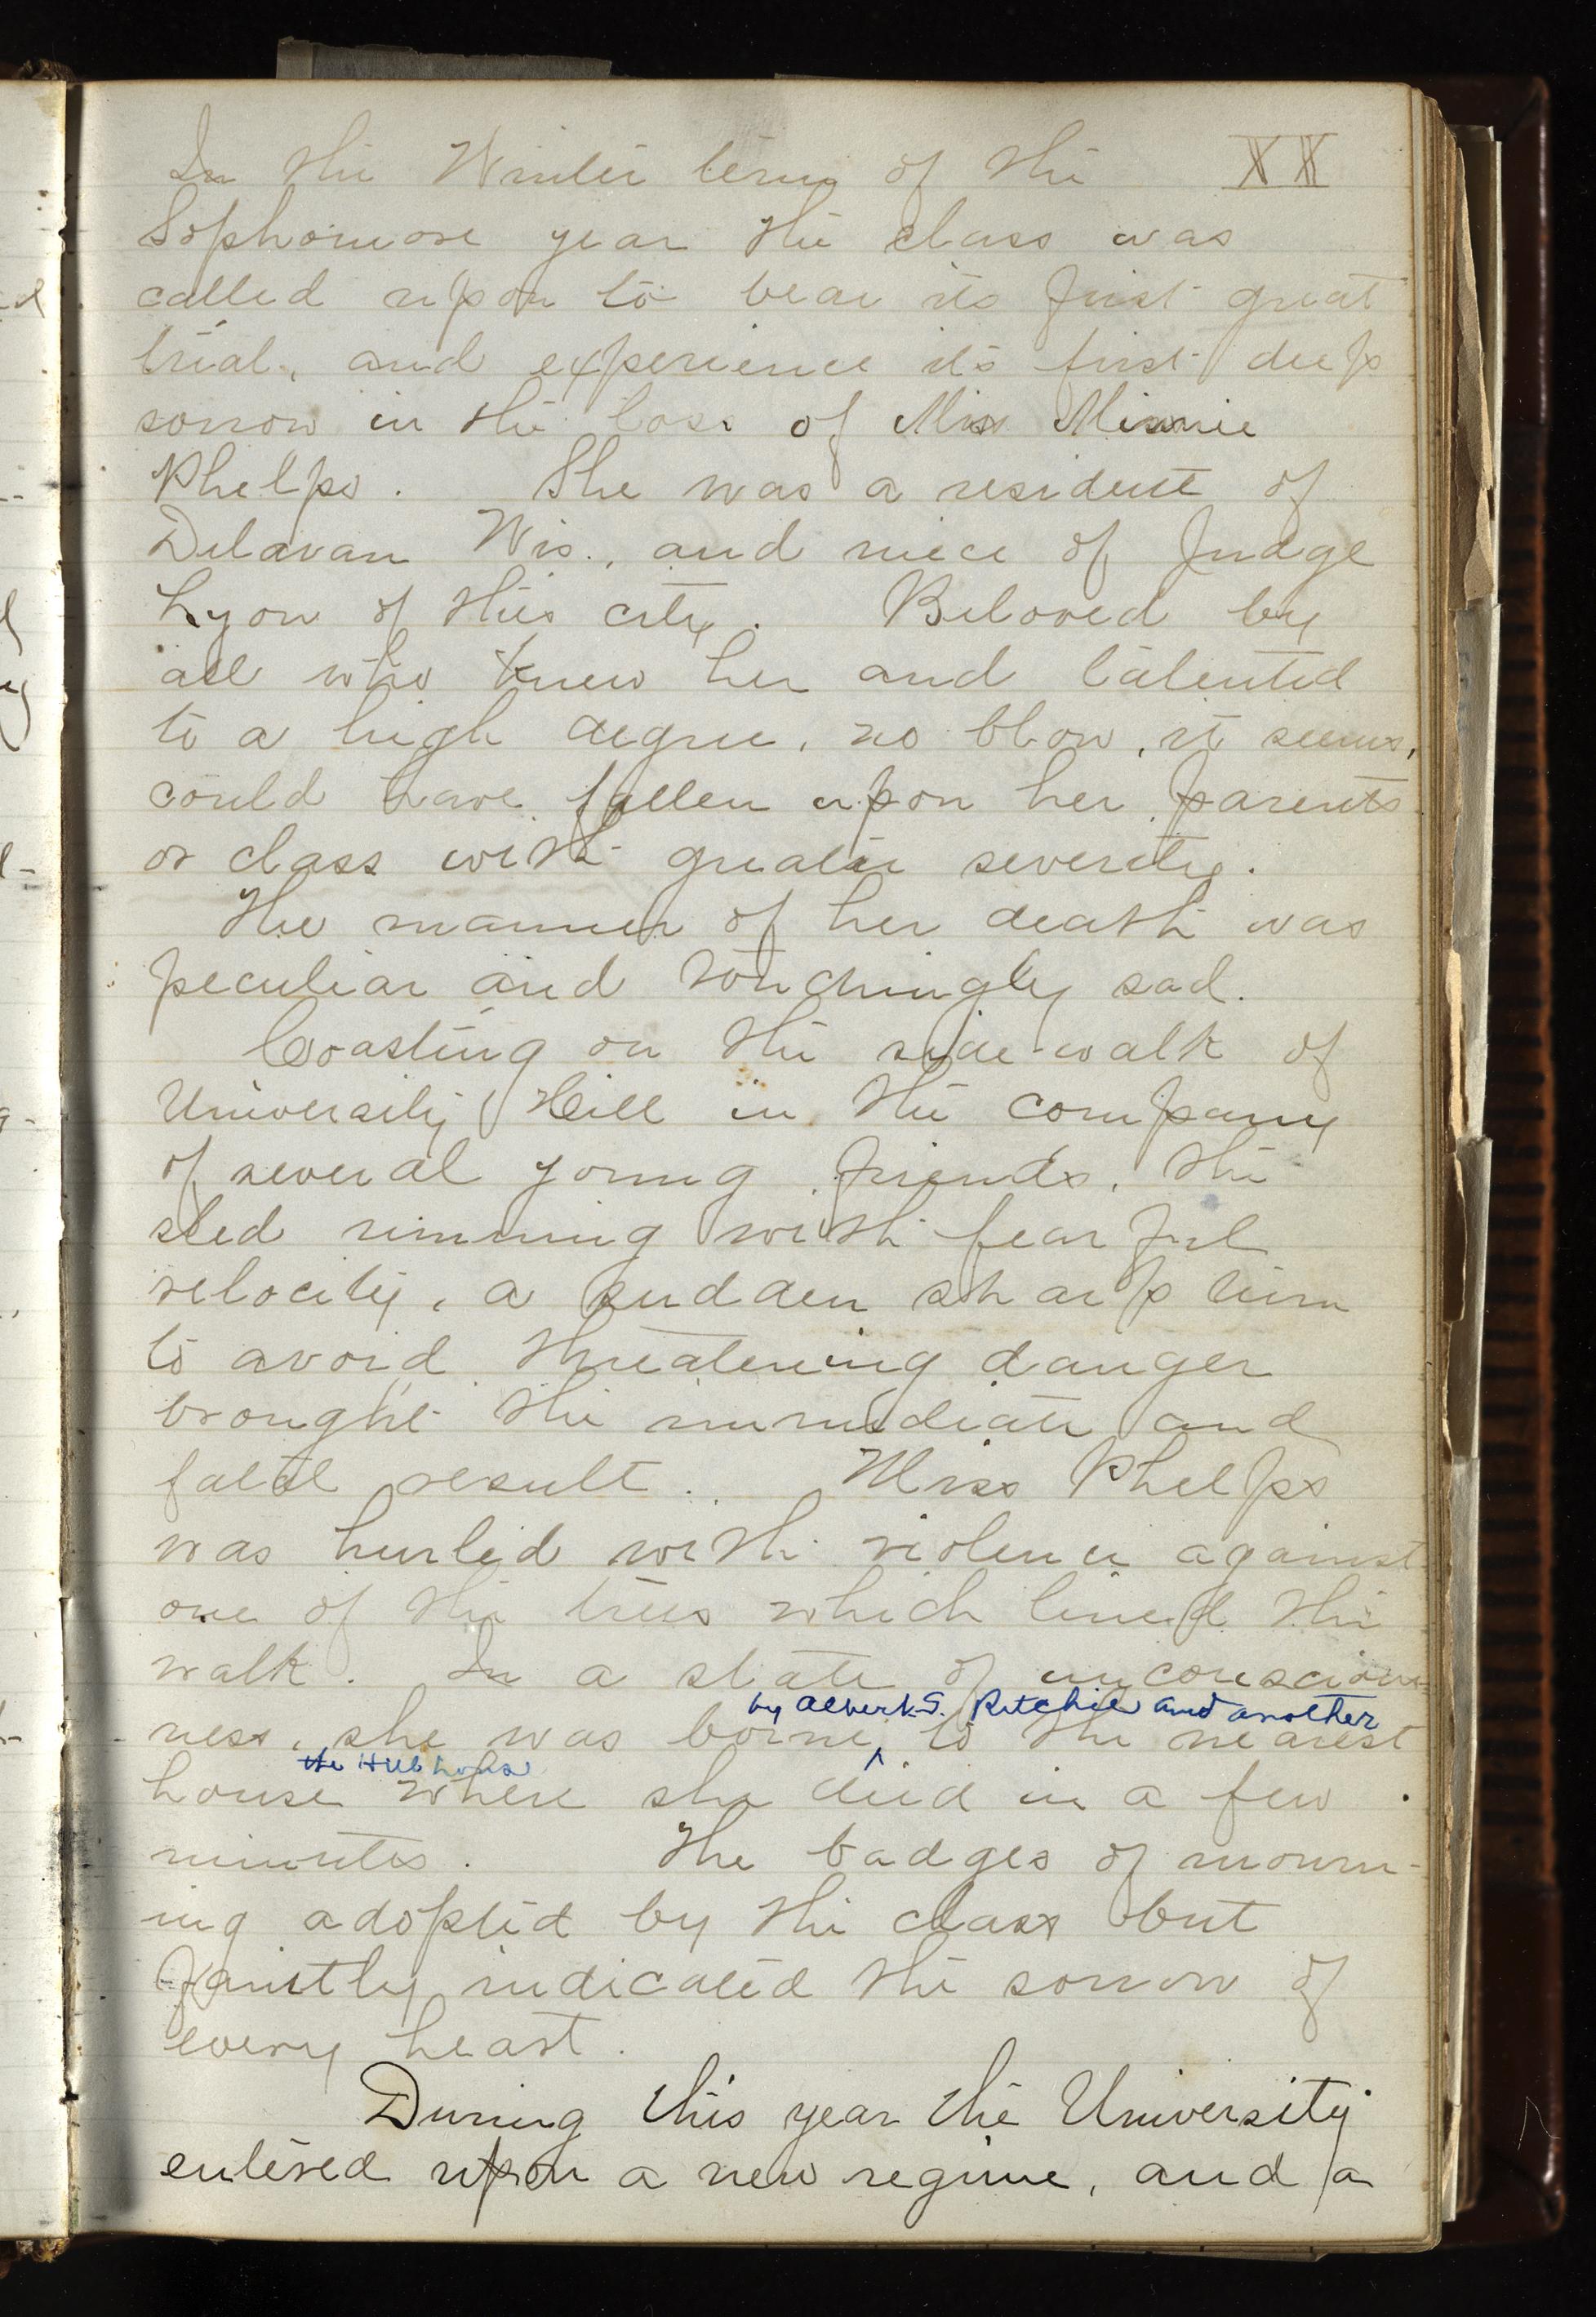 In the Winter term of the XX
Sophomore year the class was
called upon to bear its first great
trial, and experience its first deep
sorrow in the loss of Miss Minnie
Phelps. She was a resident of
Delavan Wis., and niece of Judge
Lyon of this city. Beloved by
all who knew her and talented
to a high degree, no blow, it seems,
could have fallen upon her parents
or class with greater severity.
The manner of her death was
peculiar and touchingly sad.
Coasting on the side-walk of
University Hill in the company
of several young friends, the
sled running with fearful
velocity, a sudden sharp turn
to avoid threatening danger
brought the immediate and
fatal result. Miss Phelps
was hurled with violence against
one of the trees which lined the
walk. In a state of unconscious-
by Albert S. Ritchie and another
ness, she was borne, to the nearest
the
house where she died in a few
minutes. The badges of mourn-
ing adopted by the class but
faintly indicated the sorrow of
every heart.
During this year the University
entered upon a new regime, and a